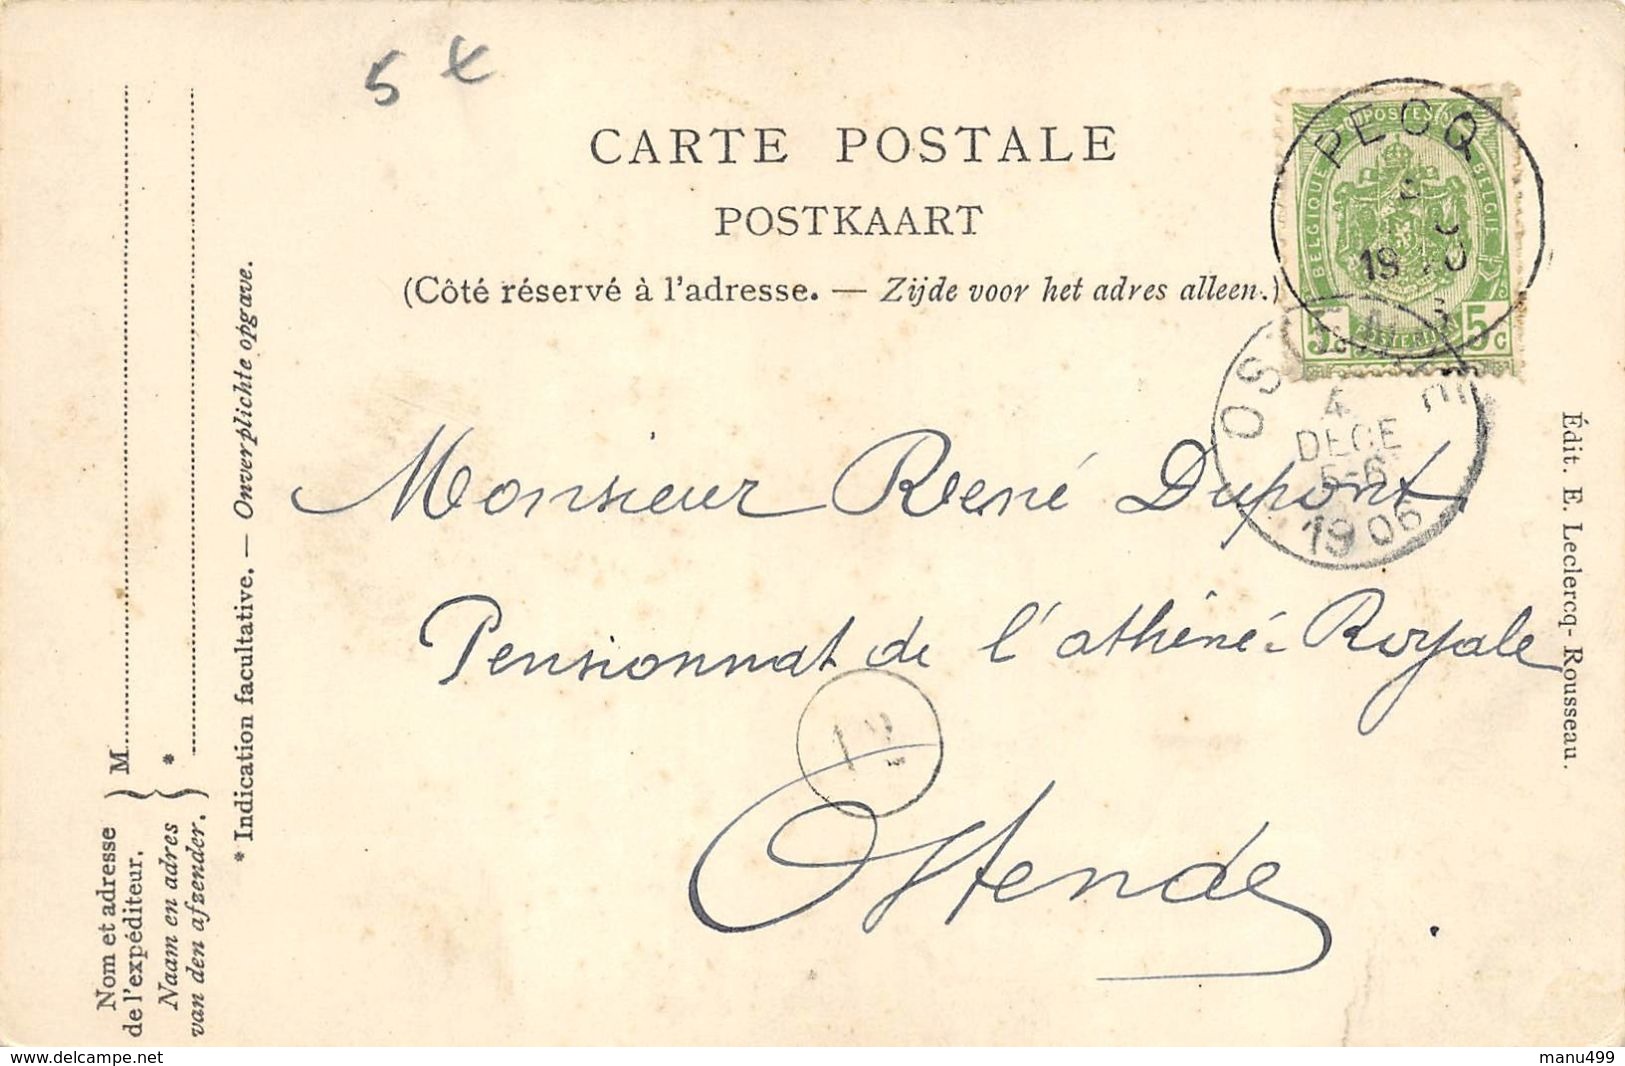 5 €
CARTE POSTALE
POSTKAART
(Côté réservé à l'adresse. — Zijde voor het adres alleen.)
PECQ
19
POSTES
BELGIQUE
BELGIE
POSTERIJEN
5c 5c
OSTENDE
4
DECE
5-6
1906
Monsieur René Dupont
Pensionnat de l'athéné-Royale
12
Ostende.
Édit. E. Leclercq-Rousseau.
* Indication facultative. — Onverplichte opgave.
M
*
Nom et adresse
de l'expéditeur.
Naam en adres
van den afzender.
www.delcampe.net
manu499